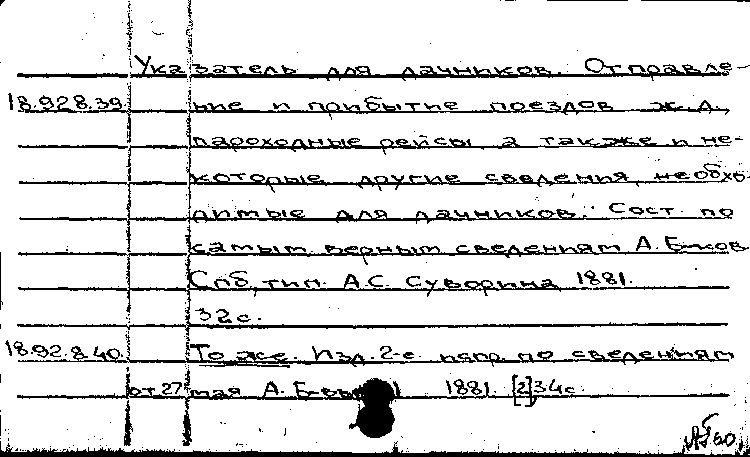 Указатель для дачников. Отправле-
18.928.39. ние и прибытие поездов ж.д.,
пароходные рейсы, а также и не-
которые другие сведения, необхо-
димые для дачников. Сост. по
самым верным сведениям А. Б-ков.
Спб, тип. А.С. Суворина 1881.
32 с.
18.92.8.40. То же. Изд. 2-е. по сведениям
от 27 мая А. 1881. [2], 34 с.